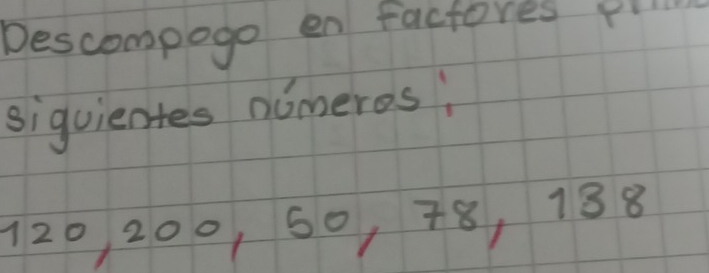 Descompogo en factores
siguientes números:
120, 200, 50, 78, 138